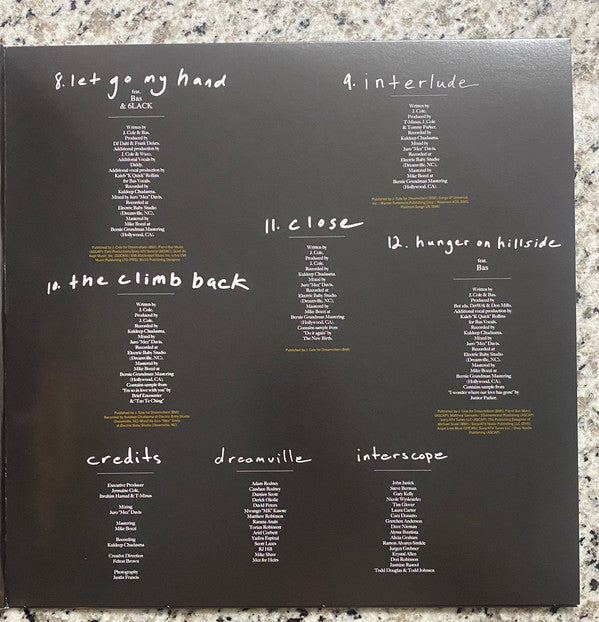 8. let go my hand
feat.
Bas
& 6LACK
Written by
J. Cole & Bas.
Produced by
DJ Dahi & Frank Dukes.
Additional production by
J. Cole & Wu10.
Additional Vocals by
Diddy.
Additional vocal production by
Kaleb "K Quick" Rollins
for Bas Vocals.
Recorded by
Kuldeep Chudasma.
Mixed by Juro "Mez" Davis.
Recorded at
Electric Baby Studio
(Dreamville, NC).
Mastered by
Mike Bozzi at
Bernie Grundman Mastering
(Hollywood, CA).
9. interlude
Written by
J. Cole.
Produced by
T-Minus, J. Cole
& Tommy Parker.
Recorded by
Kuldeep Chudasma.
Mixed by
Juro "Mez" Davis.
Recorded at
Electric Baby Studio
(Dreamville, NC).
Mastered by
Mike Bozzi at
Bernie Grundman Mastering
(Hollywood, CA).
10. the climb back
Written by
J. Cole.
Produced by
J. Cole.
Recorded by
Kuldeep Chudasma.
Mixed by
Juro "Mez" Davis.
Recorded at
Electric Baby Studio
(Dreamville, NC).
Mastered by
Mike Bozzi at
Bernie Grundman Mastering
(Hollywood, CA).
Contains sample from
"I'm so in love with you" by
Brief Encounter
& "Tao Te Ching"
11. close
Written by
J. Cole.
Produced by
J. Cole.
Recorded by
Kuldeep Chudasma.
Mixed by
Juro "Mez" Davis.
Recorded at
Electric Baby Studio
(Dreamville, NC).
Mastered by
Mike Bozzi at
Bernie Grundman Mastering
(Hollywood, CA)
Contains sample from
"Do it again" by
The New Birth.
Published by J. Cole for Dreamvillain (BMI)
12. hunger on hillside
feat.
Bas
Written by
J. Cole & Bas.
Produced by
Additional vocal production by
Kaleb "K Quick" Rollins
for Bas Vocals.
Recorded by
Kuldeep Chudasma.
Mixed by
Juro "Mez" Davis.
Recorded at
Electric Baby Studio
(Dreamville, NC).
Mastered by
Mike Bozzi at
Bernie Grundman Mastering
(Hollywood, CA).
Contains sample from
"I wonder where our love has gone" by
Junior Parker.
credits
Executive Producer
Jermaine Cole,
Ibrahim Hamad & T-Minus
Mixing
Juro "Mez" Davis
Mastering
Mike Bozzi
Recording
Kuldeep Chudasma
Creative Direction
Felton Brown
Photography
Justin Francis
dreamville
Adam Rodney
Candace Rodney
Damien Scott
Derick Okolie
David Peters
Matthew Robinson
Raenna Anais
Torian Robinson
Ariel Corbett
Yadira Espinal
Scott Lazer
KJ Hill
Mike Shaw
Mez for Heirs
interscope
John Janick
Steve Berman
Gary Kelly
Nicole Wyskoarko
Tim Glover
Laura Carter
Cara Donatto
Gretchen Anderson
Dave Nieman
Alyssa Bautista
Alicia Graham
Ramon Alvarez-Smikle
Jurgen Grebner
Krystal Allen
Don Robinson
Jasmine Rascol
Todd Douglas & Todd Johnsen